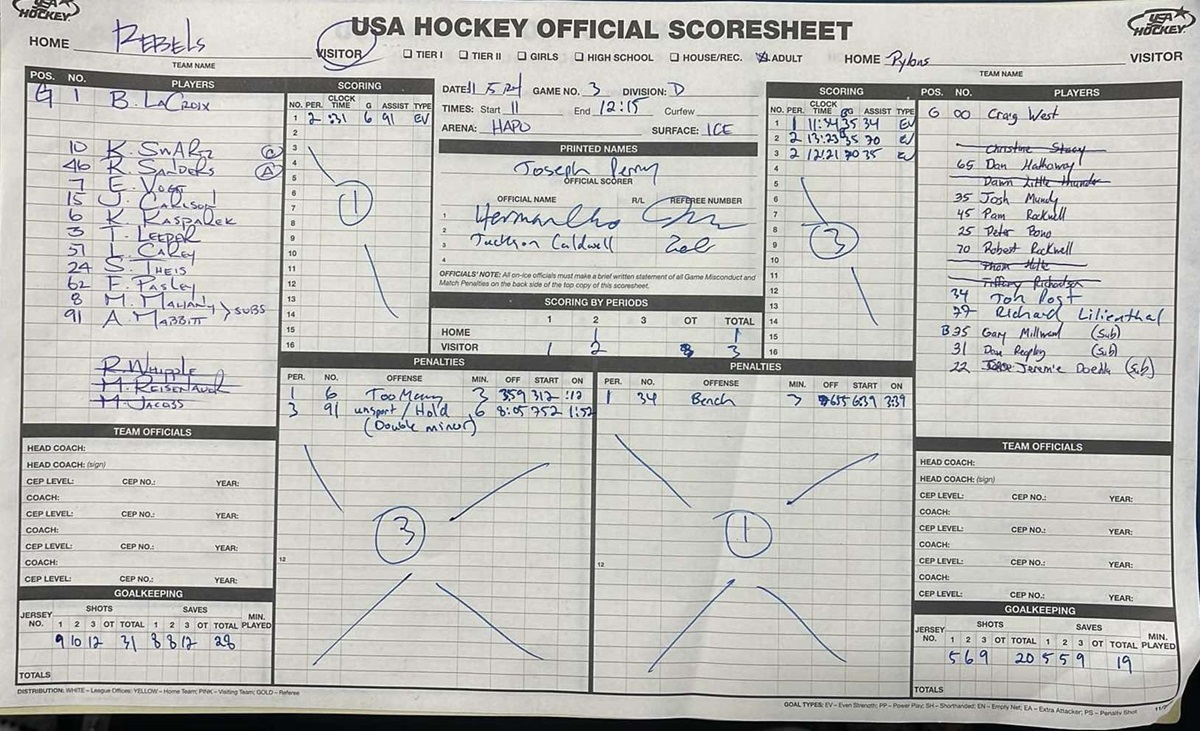 USA HOCKEY
USA HOCKEY OFFICIAL SCORESHEET
USA HOCKEY
HOME REBELS VISITOR
TEAM NAME
☐ TIER I ☐ TIER II ☐ GIRLS ☐ HIGH SCHOOL ☐ HOUSE/REC. ☒ ADULT
HOME Pylons VISITOR
TEAM NAME
POS. NO. PLAYERS
G 1 B. LaCroix
10 K. Swartz C
46 R. Sanders A
7 E. Vogt
15 J. Carlson
6 K. Kasparek
3 T. Leeper
51 L. Carey
24 S. Theis
62 F. Pasley
8 M. Mahany
91 A. Mabbitt > SUBS
R. Whipple
M. Reisenauer
M. Jacobs
TEAM OFFICIALS
HEAD COACH:
HEAD COACH: (sign)
CEP LEVEL: CEP NO.: YEAR:
COACH:
CEP LEVEL: CEP NO.: YEAR:
COACH:
CEP LEVEL: CEP NO.: YEAR:
COACH:
CEP LEVEL: CEP NO.: YEAR:
GOALKEEPING
JERSEY NO. SHOTS SAVES MIN. PLAYED
1 2 3 OT TOTAL 1 2 3 OT TOTAL
9 10 12 31 8 8 12 28
TOTALS
SCORING
NO. PER. CLOCK TIME G ASSIST TYPE
1 2 :31 6 91 EV
2
3
4
5
6
7
8
9
10
11
12
13
14
15
16
1
DATE 11 5 24 GAME NO. 3 DIVISION: D
TIMES: Start 11 End 12:15 Curfew
ARENA: HAPO SURFACE: ICE
PRINTED NAMES
Joseph Perry
OFFICIAL SCORER
OFFICIAL NAME R/L REFEREE NUMBER
1
2
3 Jackson Caldwell
4
OFFICIALS' NOTE: All on-ice officials must make a brief written statement of all Game Misconduct and
Match Penalties on the back side of the top copy of this scoresheet.
SCORING BY PERIODS
1 2 3 OT TOTAL
HOME 1 1
VISITOR 1 2 3
SCORING
NO. PER. CLOCK TIME G ASSIST TYPE
1 1 11:34 35 34 EV
2 2 13:23 35 70 EV
3 2 12:21 70 35 EV
4
5
6
7
8
9
10
11
12
13
14
15
16
3
POS. NO. PLAYERS
G 00 Craig West
Christine Stacy
65 Dan Hathaway
Dawn Little thunder
35 Josh Mundy
45 Pam Rockwell
25 Peter Bono
70 Robert Rockwell
Thom Hite
Tiffany Richardson
34 Jon Post
77 Richard Lilienthal
B35 Gary Millward (Sub)
31 Dan (Sub)
22 Jeremie Doedh (Sub)
TEAM OFFICIALS
HEAD COACH:
HEAD COACH: (sign)
CEP LEVEL: CEP NO.: YEAR:
COACH:
CEP LEVEL: CEP NO.: YEAR:
COACH:
CEP LEVEL: CEP NO.: YEAR:
COACH:
CEP LEVEL: CEP NO.: YEAR:
GOALKEEPING
JERSEY NO. SHOTS SAVES MIN. PLAYED
1 2 3 OT TOTAL 1 2 3 OT TOTAL
5 6 9 20 5 5 9 19
TOTALS
PENALTIES
PER. NO. OFFENSE MIN. OFF START ON
1 6 Too Many 3 3:59 3:12 :12
3 91 unsport/Hold 6 8:05 7:52 1:52
(Double minor)
12
3
PENALTIES
PER. NO. OFFENSE MIN. OFF START ON
1 34 Bench 3 6:55 6:39 3:39
12
1
DISTRIBUTION: WHITE – League Offices; YELLOW – Home Team; PINK – Visiting Team; GOLD – Referee
GOAL TYPES: EV – Even Strength; PP – Power Play; SH – Shorthanded; EN – Empty Net; EA – Extra Attacker; PS – Penalty Shot